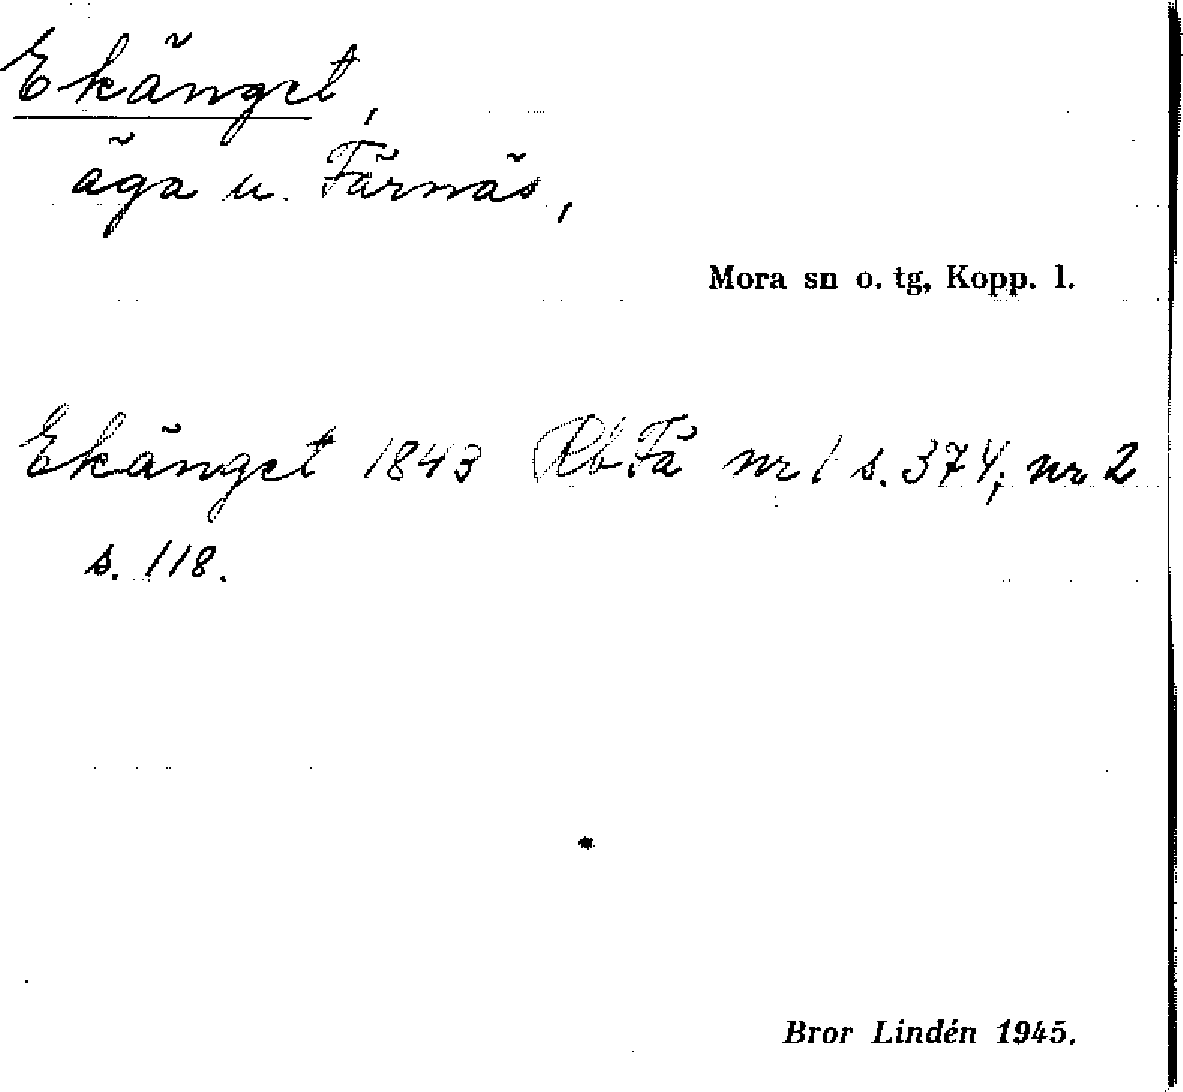 Ekänget,
äga u. Färnäs,
Mora sn o. tg, Kopp. l.
Ekänget 1843 RbFä nr 1 s. 374; nr 2
s. 118.
Bror Lindén 1945.